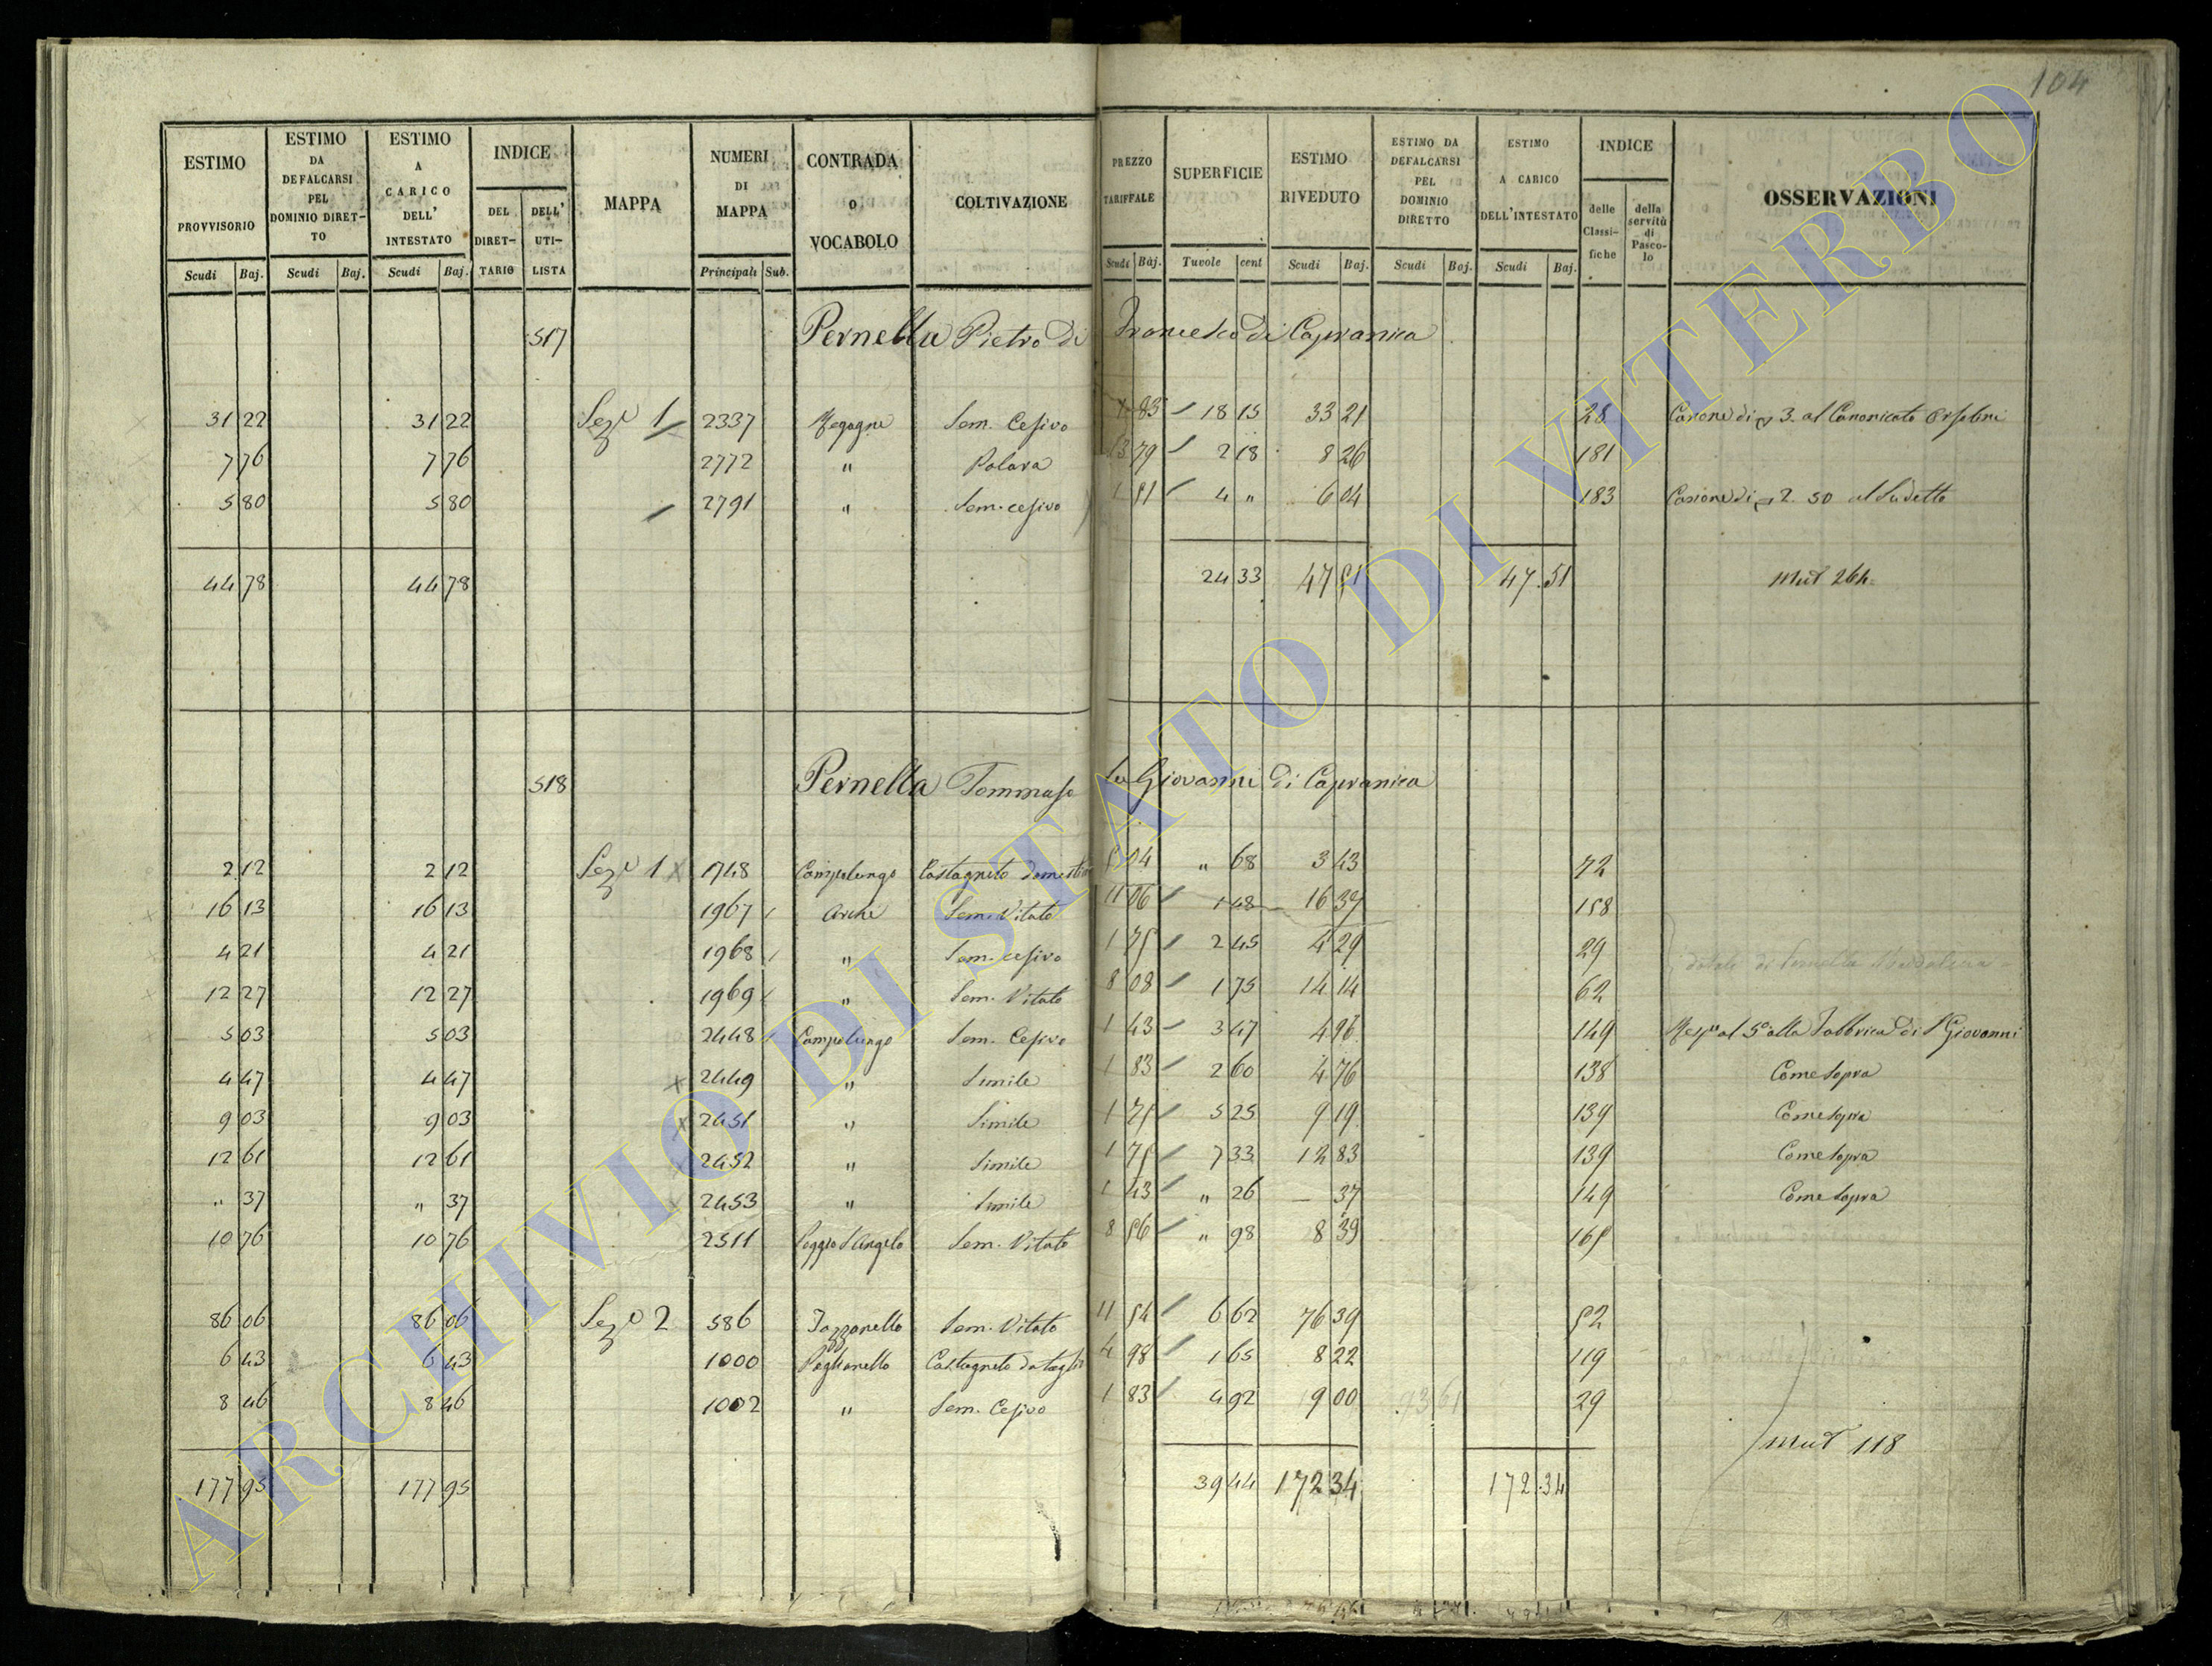 104
ESTIMO PROVVISORIO Scudi Baj. ESTIMO DA DEFALCARSI PEL DOMINIO DIRETTO Scudi Baj. ESTIMO A CARICO DELL' INTESTATO Scudi Baj. INDICE DEL DIRETTARIO DELL' UTILISTA MAPPA NUMERI DI MAPPA Principali Sub. CONTRADA O VOCABOLO COLTIVAZIONE PREZZO TARIFFALE Scudi Baj. SUPERFICIE Tavole cent ESTIMO RIVEDUTO Scudi Baj. ESTIMO DA DEFALCARSI PEL DOMINIO DIRETTO Scudi Baj. ESTIMO A CARICO DELL'INTESTATO Scudi Baj. INDICE delle Classifiche della servitù di Pascolo OSSERVAZIONI
517 Pernella Pietro di Francesco di Capranica
31 22 31 22 Sez.e 1 2337 Sem. Cesivo 1 83 18 15 33 21 28 Canone di 3. al Canonicato Orsolini
7 76 7 76 2772 " 3 79 2 18 8 26 181
5 80 5 80 2791 " Sem. cesivo 1 51 4 " 6 04 183 Canone di 2. 50 al Sudetto
44 78 44 78 24 33 47 51 47.51 Mut 264
518 Pernella Tommaso fu Giovanni di Capranica
2 12 2 12 Sez.e 1 1748 Campolungo Castagneto domestico 5 04 " 68 3 43 72
16 13 16 13 1967 Arche Sem. Vitato 11 06 1 48 16 37 158
4 21 4 21 1968 " Sem. cesivo 1 75 2 45 4 29 29
dotali di Pernella Maddalena
12 27 12 27 1969 " Sem. Vitato 8 08 1 75 14 14 62
5 03 5 03 2448 Campolungo Sem. Cesivo 1 43 3 47 4 96 149 al 5° alla Fabbrica di S Giovanni
4 47 4 47 2449 " Simile 1 83 2 60 4 76 138 Come sopra
9 03 9 03 2451 " Simile 1 75 5 25 9 19 139 Come sopra
12 61 12 61 2452 " Simile 1 75 7 33 12 83 139 Come sopra
" 37 " 37 2453 " Simile 1 43 " 26 — 37 149 Come sopra
10 76 10 76 2511 Poggio S Angelo Sem. Vitato 8 56 " 98 8 39 165
86 06 86 06 Sez.e 2 586 Sem. Vitato 11 54 6 62 76 39 52
6 43 6 43 1000 Paglianello Castagneto da taglio 4 98 1 65 8 22 119
8 46 8 46 1002 " Sem. Cesivo 1 83 4 92 9 00 93 61 29
Mut 118
177 95 177 95 39 44 172 34 172.34
ARCHIVIO DI STATO DI VITERBO